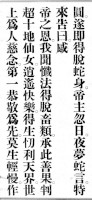 圓遂即得脫蛇身帝主忽日夜夢蛇言特
來告曰咸
帝之恩我聞懺法得脫畜類承此善果判
超十地仙女逍遙快樂得生忉利天界世
上為人慈念第一恭敬為先莫生輕慢作